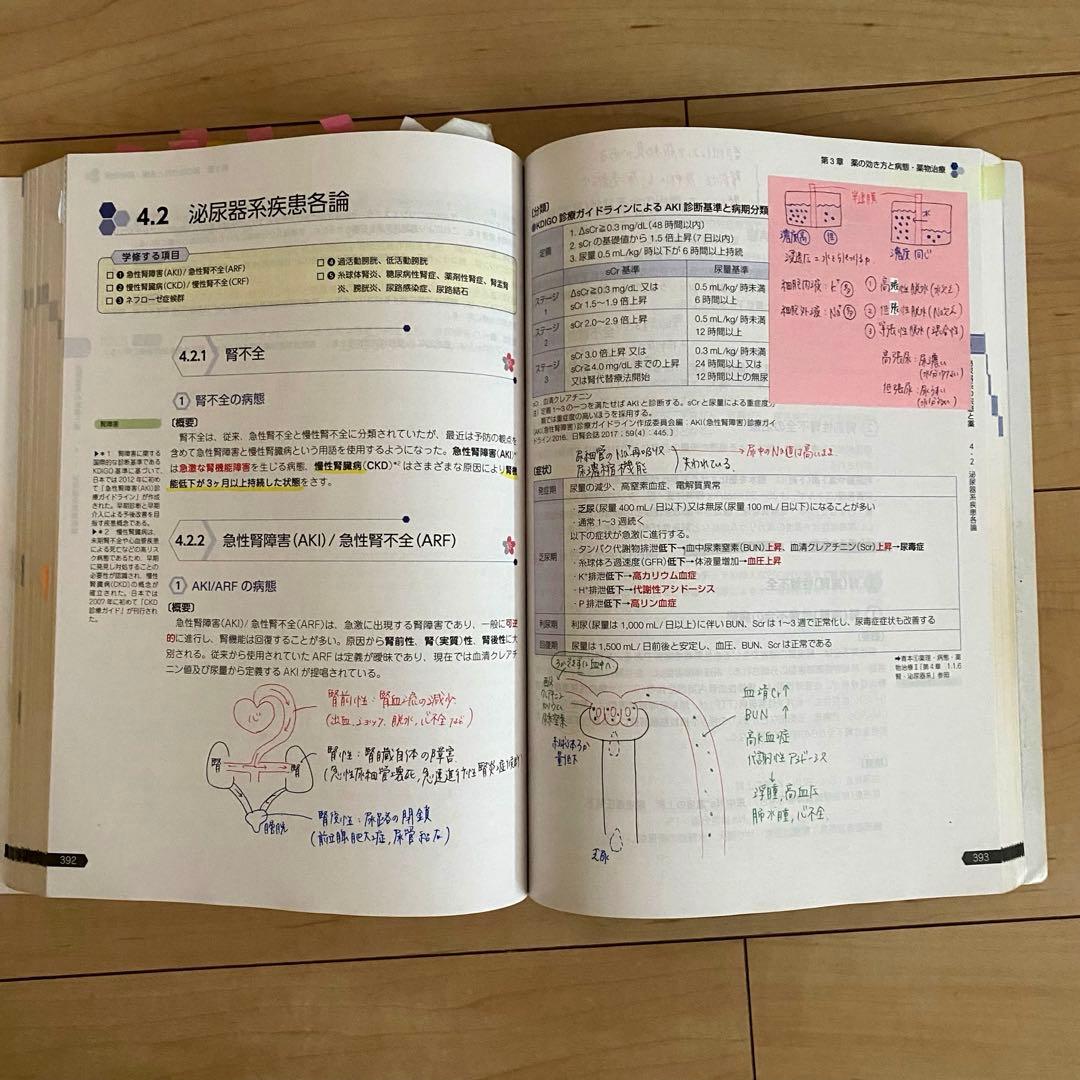 4.2 泌尿器系疾患各論
学修する項目
□ ❶ 急性腎障害(AKI)/ 急性腎不全(ARF)
□ ❷ 慢性腎臓病(CKD)/ 慢性腎不全(CRF)
□ ❸ ネフローゼ症候群
□ ❹ 過活動膀胱、低活動膀胱
□ ❺ 糸球体腎炎、糖尿病性腎症、薬剤性腎症、腎盂腎
炎、膀胱炎、尿路感染症、尿路結石
4.2.1 腎不全
1 腎不全の病態
〔概要〕
腎不全は、従来、急性腎不全と慢性腎不全に分類されていたが、最近は予防の観点を
含めて急性腎障害と慢性腎臓病という用語を使用するようになった。急性腎障害(AKI)*1
は急激な腎機能障害を生じる病態、慢性腎臓病(CKD)*2 はさまざまな原因により腎機
能低下が3ヶ月以上持続した状態をさす。
腎障害
▶*1 腎障害に関する
国際的な診断基準である
KDIGO 基準に基づいて、
日本では 2012 年に初め
て「急性腎障害(AKI)診
療ガイドライン」が作成
された。早期診断と早期
介入による予後改善を目
指す疾患概念である。
▶*2 慢性腎臓病は、
末期腎不全や心血管疾患
による死亡などの高リス
ク病態であるため、早期
に発見し対処することの
必要性が認識され、慢性
腎臓病(CKD)の概念が
確立された。日本では
2007 年に初めて「CKD
診療ガイド」が刊行され
た。
4.2.2 急性腎障害(AKI)/ 急性腎不全(ARF)
1 AKI/ARF の病態
〔概要〕
急性腎障害(AKI)/ 急性腎不全(ARF)は、急激に出現する腎障害であり、一般に可逆
的に進行し、腎機能は回復することが多い。原因から腎前性、腎(実質)性、腎後性に大
別される。従来から使用されていた ARF は定義が曖昧であり、現在では血清クレアチ
ニン値及び尿量から定義する AKI が提唱されている。
腎前性：腎血流の減少
(出血,ショック,脱水,心不全など)
心
腎 腎
腎性：腎臓自体の障害
(急性尿細管壊死,急速進行性腎炎症候群)
腎後性：尿路の閉鎖
(前立腺肥大症,尿管結石)
膀胱
392
第3章 薬の効き方と病態・薬物治療
〔分類〕
●KDIGO 診療ガイドラインによる AKI 診断基準と病期分類
定義
1. ΔsCr≧0.3 mg/dL(48 時間以内)
2. sCr の基礎値から 1.5 倍上昇(7 日以内)
3. 尿量 0.5 mL/kg/ 時以下が 6 時間以上持続
sCr 基準 尿量基準
ステージ1 ΔsCr≧0.3 mg/dL 又は sCr 1.5〜1.9 倍上昇 0.5 mL/kg/ 時未満 6 時間以上
ステージ2 sCr 2.0〜2.9 倍上昇 0.5 mL/kg/ 時未満 12 時間以上
ステージ3 sCr 3.0 倍上昇 又は sCr≧4.0 mg/dL までの上昇 又は腎代替療法開始 0.3 mL/kg/ 時未満 24 時間以上 又は 12 時間以上の無尿
sCr：血清クレアチニン
注)定義 1〜3 の一つを満たせば AKI と診断する。sCr と尿量による重症度分
類では重症度の高いほうを採用する。
(AKI(急性腎障害)診療ガイドライン作成委員会編：AKI(急性腎障害)診療ガイ
ドライン2016, 日腎会誌 2017；59(4)：445.)
濃度高 低
半透膜
水
濃度同じ
浸透圧＝水を引きつける力
細胞内液：K⁺多
細胞外液：Na⁺多
① 高張性脱水(水欠乏)
② 低張性脱水(Na欠乏)
③ 等張性脱水(混合性)
高張尿：尿濃い
(水分少ない)
低張尿：尿うすい
(水分多い)
尿細管のNa⁺再吸収
尿濃縮機能
失われている
→尿中のNa値は高いまま
〔症状〕
発症期 尿量の減少、高窒素血症、電解質異常
乏尿期
・乏尿(尿量 400 mL/ 日以下)又は無尿(尿量 100 mL/ 日以下)になることが多い
・通常 1〜3 週続く
以下の症状が急激に進行する。
・タンパク代謝物排泄低下→血中尿素窒素(BUN)上昇、血清クレアチニン(Scr)上昇→尿毒症
・糸球体ろ過速度(GFR)低下→体液量増加→血圧上昇
・K⁺排泄低下→高カリウム血症
・H⁺排泄低下→代謝性アシドーシス
・P 排泄低下→高リン血症
利尿期 利尿(尿量は 1,000 mL/ 日以上)に伴い BUN、Scr は 1〜3 週で正常化し、尿毒症症状も改善する
回復期 尿量は 1,500 mL/ 日前後と安定し、血圧、BUN、Scr は正常である
➡青本①薬理・病態・薬
物治療Ⅱ「第4章 1.1.6
腎・泌尿器系」参照
4-2 泌尿器系疾患各論
ろ過できずに血中へ
クレアチニン
カリウム
尿素窒素
糸球体ろ過
量低下
乏尿
血清Cr↑
BUN ↑
高K血症
代謝性アシドーシス
↓
浮腫,高血圧
肺水腫,心不全
393